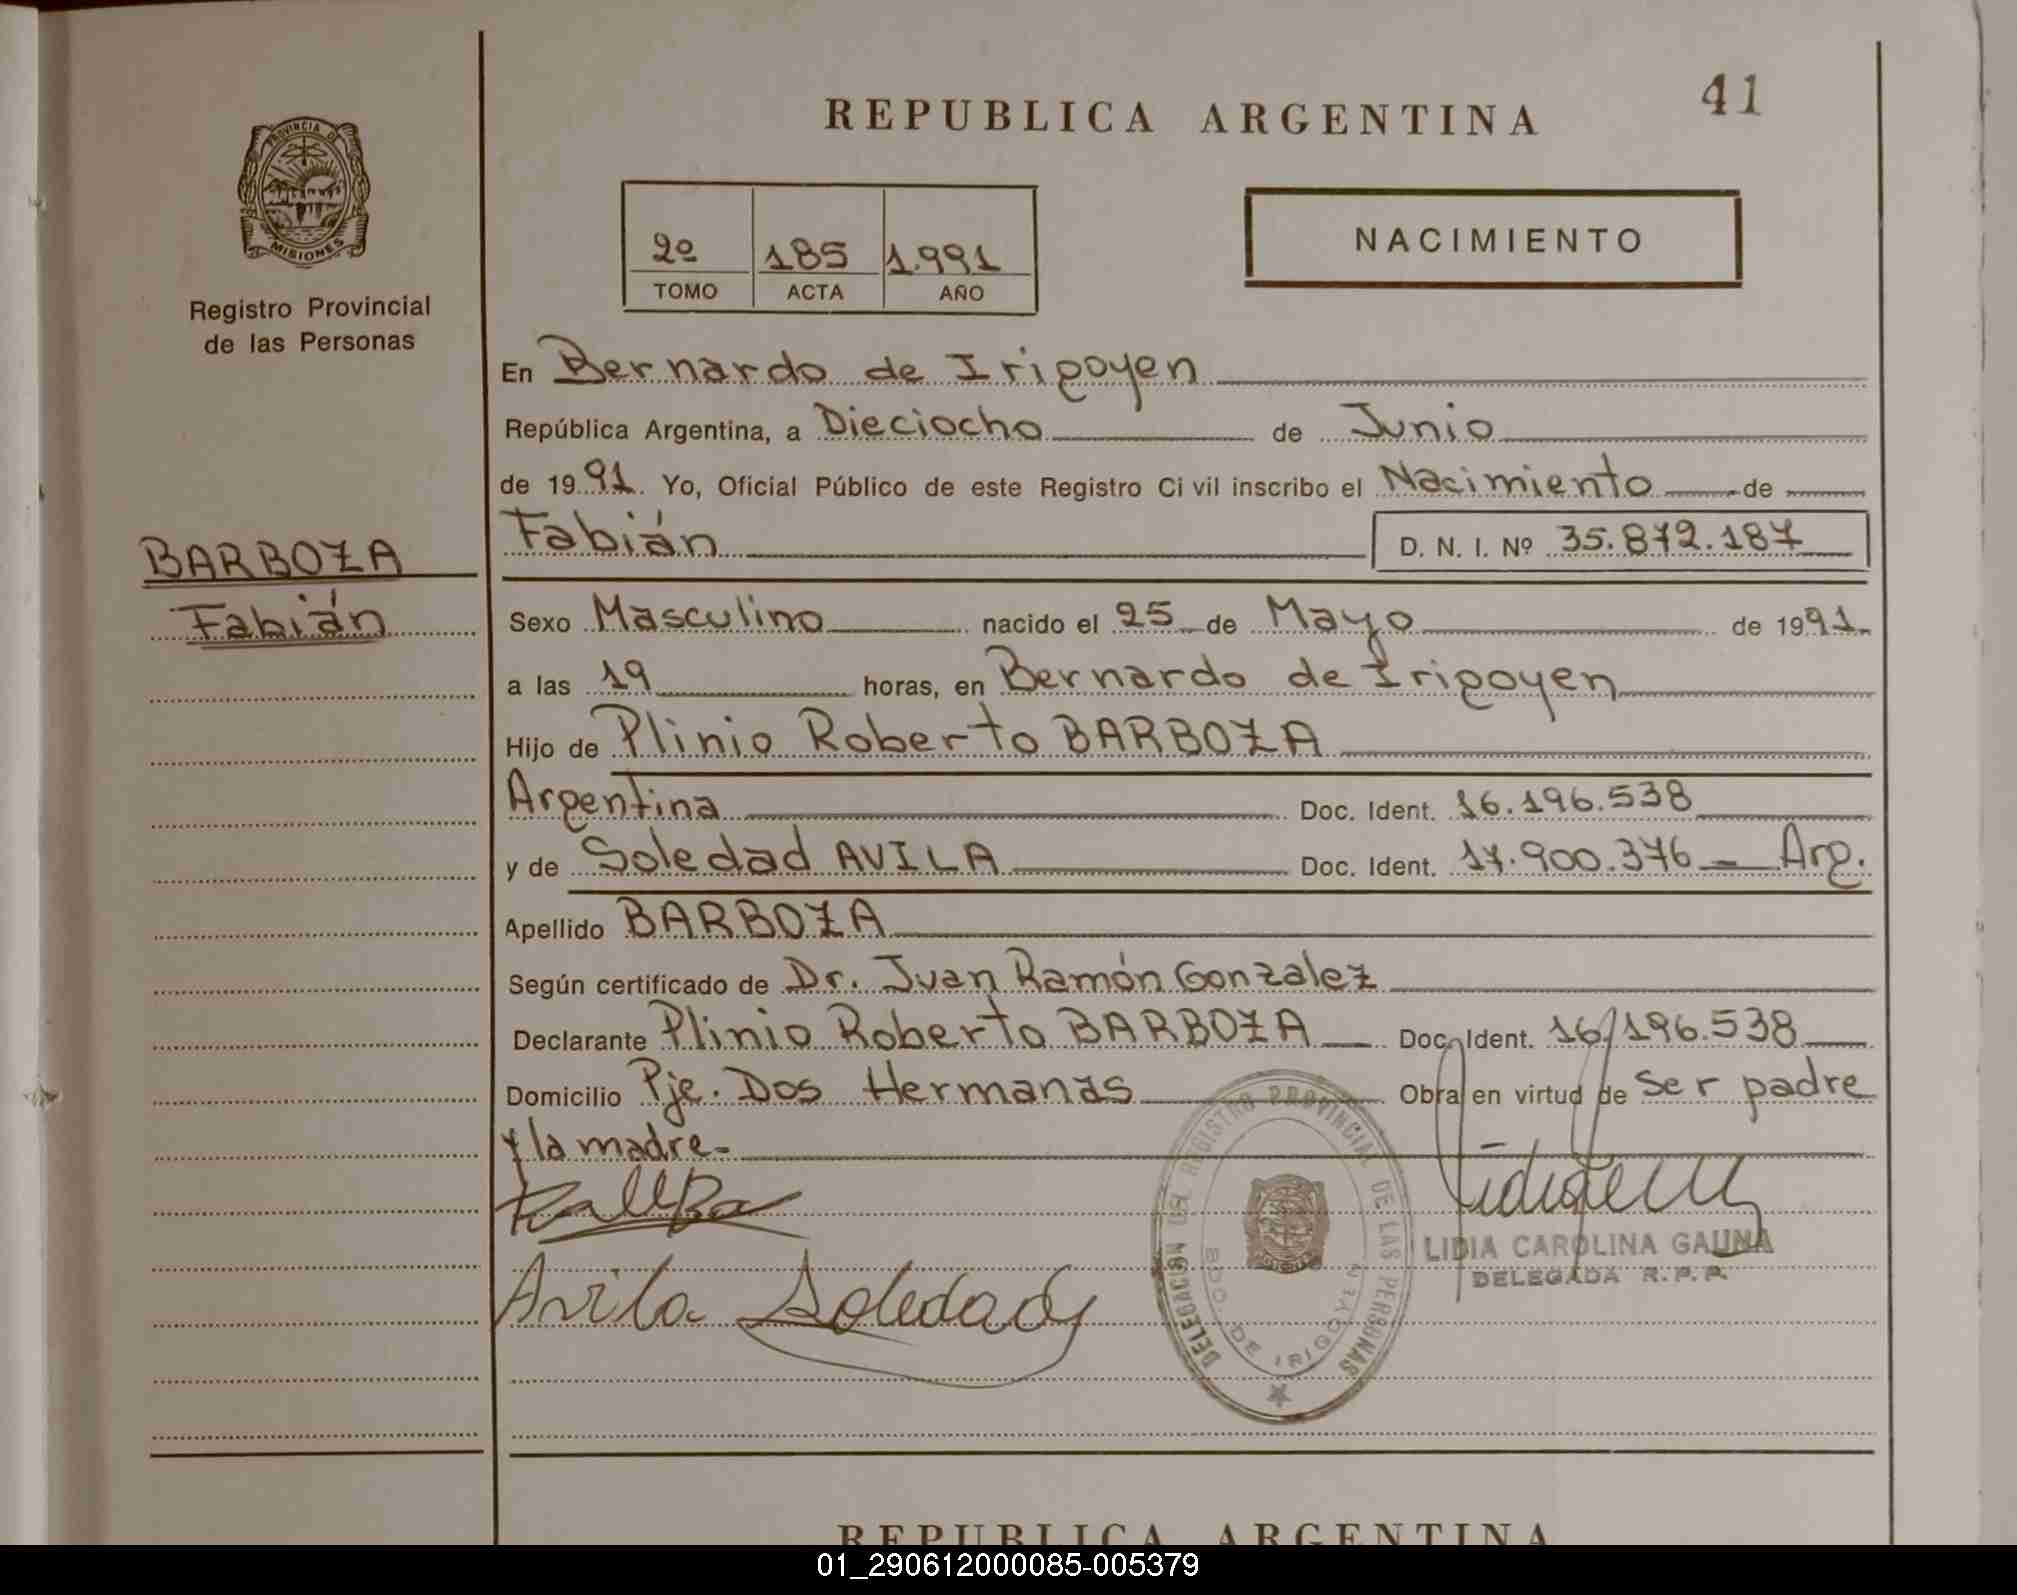 41
REPUBLICA ARGENTINA
PROVINCIA DE
MISIONES
Registro Provincial
de las Personas
2º 185 1.991
TOMO ACTA AÑO
NACIMIENTO
En Bernardo de Irigoyen
República Argentina, a Dieciocho de Junio
de 1991. Yo, Oficial Público de este Registro Civil inscribo el Nacimiento de
Fabián D. N. I. Nº 35.872.187
BARBOZA
Fabián
Sexo Masculino nacido el 25 de Mayo de 1991
a las 19 horas, en Bernardo de Irigoyen
Hijo de Plinio Roberto BARBOZA
Argentina Doc. Ident. 16.196.538
y de Soledad AVILA Doc. Ident. 17.900.376 - Arg.
Apellido BARBOZA
Según certificado de Dr. Juan Ramón Gonzalez
Declarante Plinio Roberto BARBOZA Doc. Ident. 16.196.538
Domicilio Pje. Dos Hermanas Obra en virtud de Ser padre
y la madre.-
Avila Soledad
DELEGACION DEL REGISTRO PROVINCIAL DE LAS PERSONAS
BDO. DE IRIGOYEN
LIDIA CAROLINA GAUNA
DELEGADA R.P.P.
REPUBLICA ARGENTINA
01_290612000085-005379